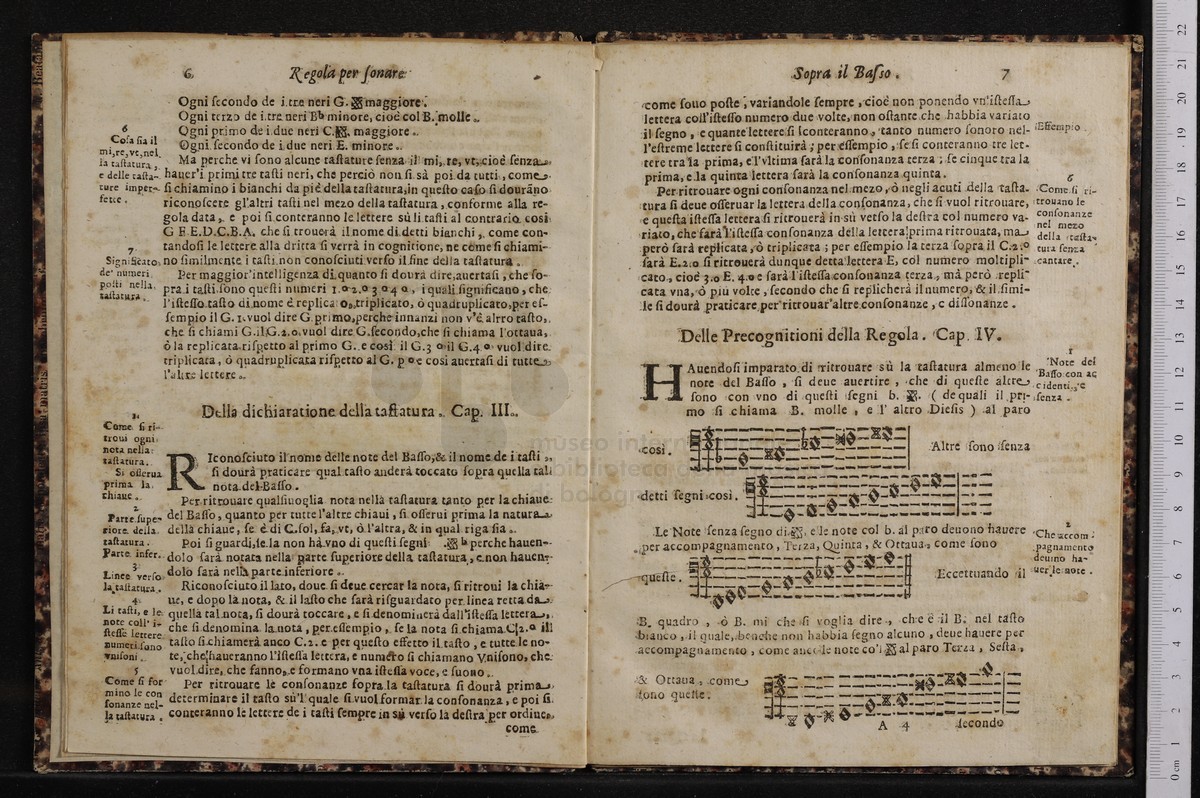 6 Regola per sonare
Ogni secondo de i tre neri G. ※ maggiore.
Ogni terzo de i tre neri Bb minore, cioè col B. molle.
Ogni primo de i due neri C. ※, maggiore.
Ogni secondo de i due neri E. minore.
6
Cosa sia il
mi, re, vt, nel
la tastatura,
e delle tasta-
ture imper-
fette.
Ma perche vi sono alcune tastature senza il mi, re, vt, cioè senza
hauer'i primi tre tasti neri, che perciò non si sà poi da tutti, come
si chiamino i bianchi da piè della tastatura, in questo caso si douràno
riconoscere gl'altri tasti nel mezo della tastatura, conforme alla re-
gola data, e poi si conteranno le lettere sù li tasti al contrario così
G F E. D. C. B. A. che si trouerà il nome di detti bianchi, come con-
tandosi le lettere alla dritta si verrà in cognitione, ne come si chiami-
no similmente i tasti non conosciuti verso il fine della tastatura.
7
Significato
de' numeri
posti nella
tastatura.
Per maggior'intelligenza di quanto si dourà dire, auertasi, che so-
pra i tasti sono questi numeri 1.o 2.o 3 o 4 o, i quali significano, che
l'istesso tasto di nome è replicato, triplicato, ò quadruplicato, per es-
sempio il G. 1. vuol dire G. primo, perche innanzi non v'è altro tasto,
che si chiami G. il G. 2.o. vuol dire G. secondo, che si chiama l'ottaua,
ò la replicata rispetto al primo G. e così il G. 3 o il G. 4 o vuol dire
triplicata, ò quadruplicata rispetto al G. p o e così auertasi di tutte
l'altre lettere.
Della dichiaratione della tastatura. Cap. III.
1
Come si ri-
troui ogni
nota nella
tastatura.
Si osserua
prima la
chiaue.
RIconosciuto il nome delle note del Basso, & il nome de i tasti,
si dourà praticare qual tasto anderà toccato sopra quella tal
nota del Basso.
Per ritrouare qualsiuoglia nota nella tastatura tanto per la chiaue
del Basso, quanto per tutte l'altre chiaui, si osserui prima la natura
della chiaue, se è di C. sol, fa, vt, ò l'altra, & in qual riga sia.
2
Parte supe-
riore della
tastatura.
Parte infer.
Poi si guardi, se la non hà vno di questi segni ※ b perche hauen-
dolo sarà notata nella parte superiore della tastatura, e non hauen-
dolo sarà nella parte inferiore.
3
Linee verso
la tastatura.
4
Li tasti, e le
note coll' i-
stesse lettere
numeri sono
vnisoni.
Riconosciuto il lato, doue si deue cercar la nota, si ritroui la chia-
ue, e dopo la nota, & il lasto che sarà risguardato per linea retta da
quella tal nota, si dourà toccare, e si denominerà dall'istessa lettera,
che si denomina la nota, per essempio, se la nota si chiama C. 2.o il
tasto si chiamerà anco C. 2. e per questo effetto il tasto, e tutte le no-
te, che haueranno l'istessa lettera, e numero si chiamano Vnisono, che
vuol dire, che fanno, e formano vna istessa voce, e suono.
5
Come si for
mino le con
sonanze nel-
la tastatura.
Per ritrouare le consonanze sopra la tastatura si dourà prima
determinare il tasto sù'l quale si vuol formar la consonanza, e poi si
conteranno le lettere de i tasti sempre in sù verso la destra per ordine,
come
Sopra il Basso. 7
come sono poste, variandole sempre, cioè non ponendo vn'istessa
lettera coll'istesso numero due volte, non ostante che habbia variato
il segno, e quante lettere si conteranno, tanto numero sonoro nel-
l'estreme lettere si constituirà; per essempio, se si conteranno tre let-
tere tra la prima, e l'vltima sarà la consonanza terza; se cinque tra la
prima, e la quinta lettera sarà la consonanza quinta.
Essempio
Per ritrouare ogni consonanza nel mezo, ò negli acuti della tasta-
tura si deue osseruar la lettera della consonanza, che si vuol ritrouare,
e questa istessa lettera si ritrouerà in sù verso la destra col numero va-
riato, che farà l'istessa consonanza della lettera prima ritrouata, ma
però sarà replicata, ò triplicata; per essempio la terza sopra il C. 2.o
sarà E. 2.o si ritrouerà dunque detta lettera E, col numero moltipli-
cato, cioè 3.o E. 4.o e sarà l'istessa consonanza terza, mà però repli-
cata vna, ò più volte, secondo che si replicherà il numero, & il simi-
le si dourà praticare per ritrouar'altre consonanze, e dissonanze.
6
Come si ri-
trouano le
consonanze
nel mezo
della tasta-
tura senza
cantare.
Delle Precognitioni della Regola. Cap. IV.
HAuendosi imparato di ritrouare sù la tastatura almeno le
note del Basso, si deue auertire, che di queste altre
sono con vno di questi segni b. ※. ( de quali il pri-
mo si chiama B. molle, e l' altro Diesis ) al paro
1
Note del
Basso con ac
cidenti, e
senza.
così.
Altre sono senza
detti segni così.
Le Note senza segno di ※ e le note col b. al paro deuono hauere
per accompagnamento, Terza, Quinta, & Ottaua, come sono
2
Che accom-
pagnamento
deuino ha-
uer le note.
queste.
Eccettuando il
B. quadro, ò B. mi che si voglia dire, che è il B: nel tasto
bianco, il quale, benche non habbia segno alcuno, deue hauere per
accompagnamento, come anco le note co'l ※ al paro Terza, Sesta,
& Ottaua, come
sono queste.
A 4
secondo